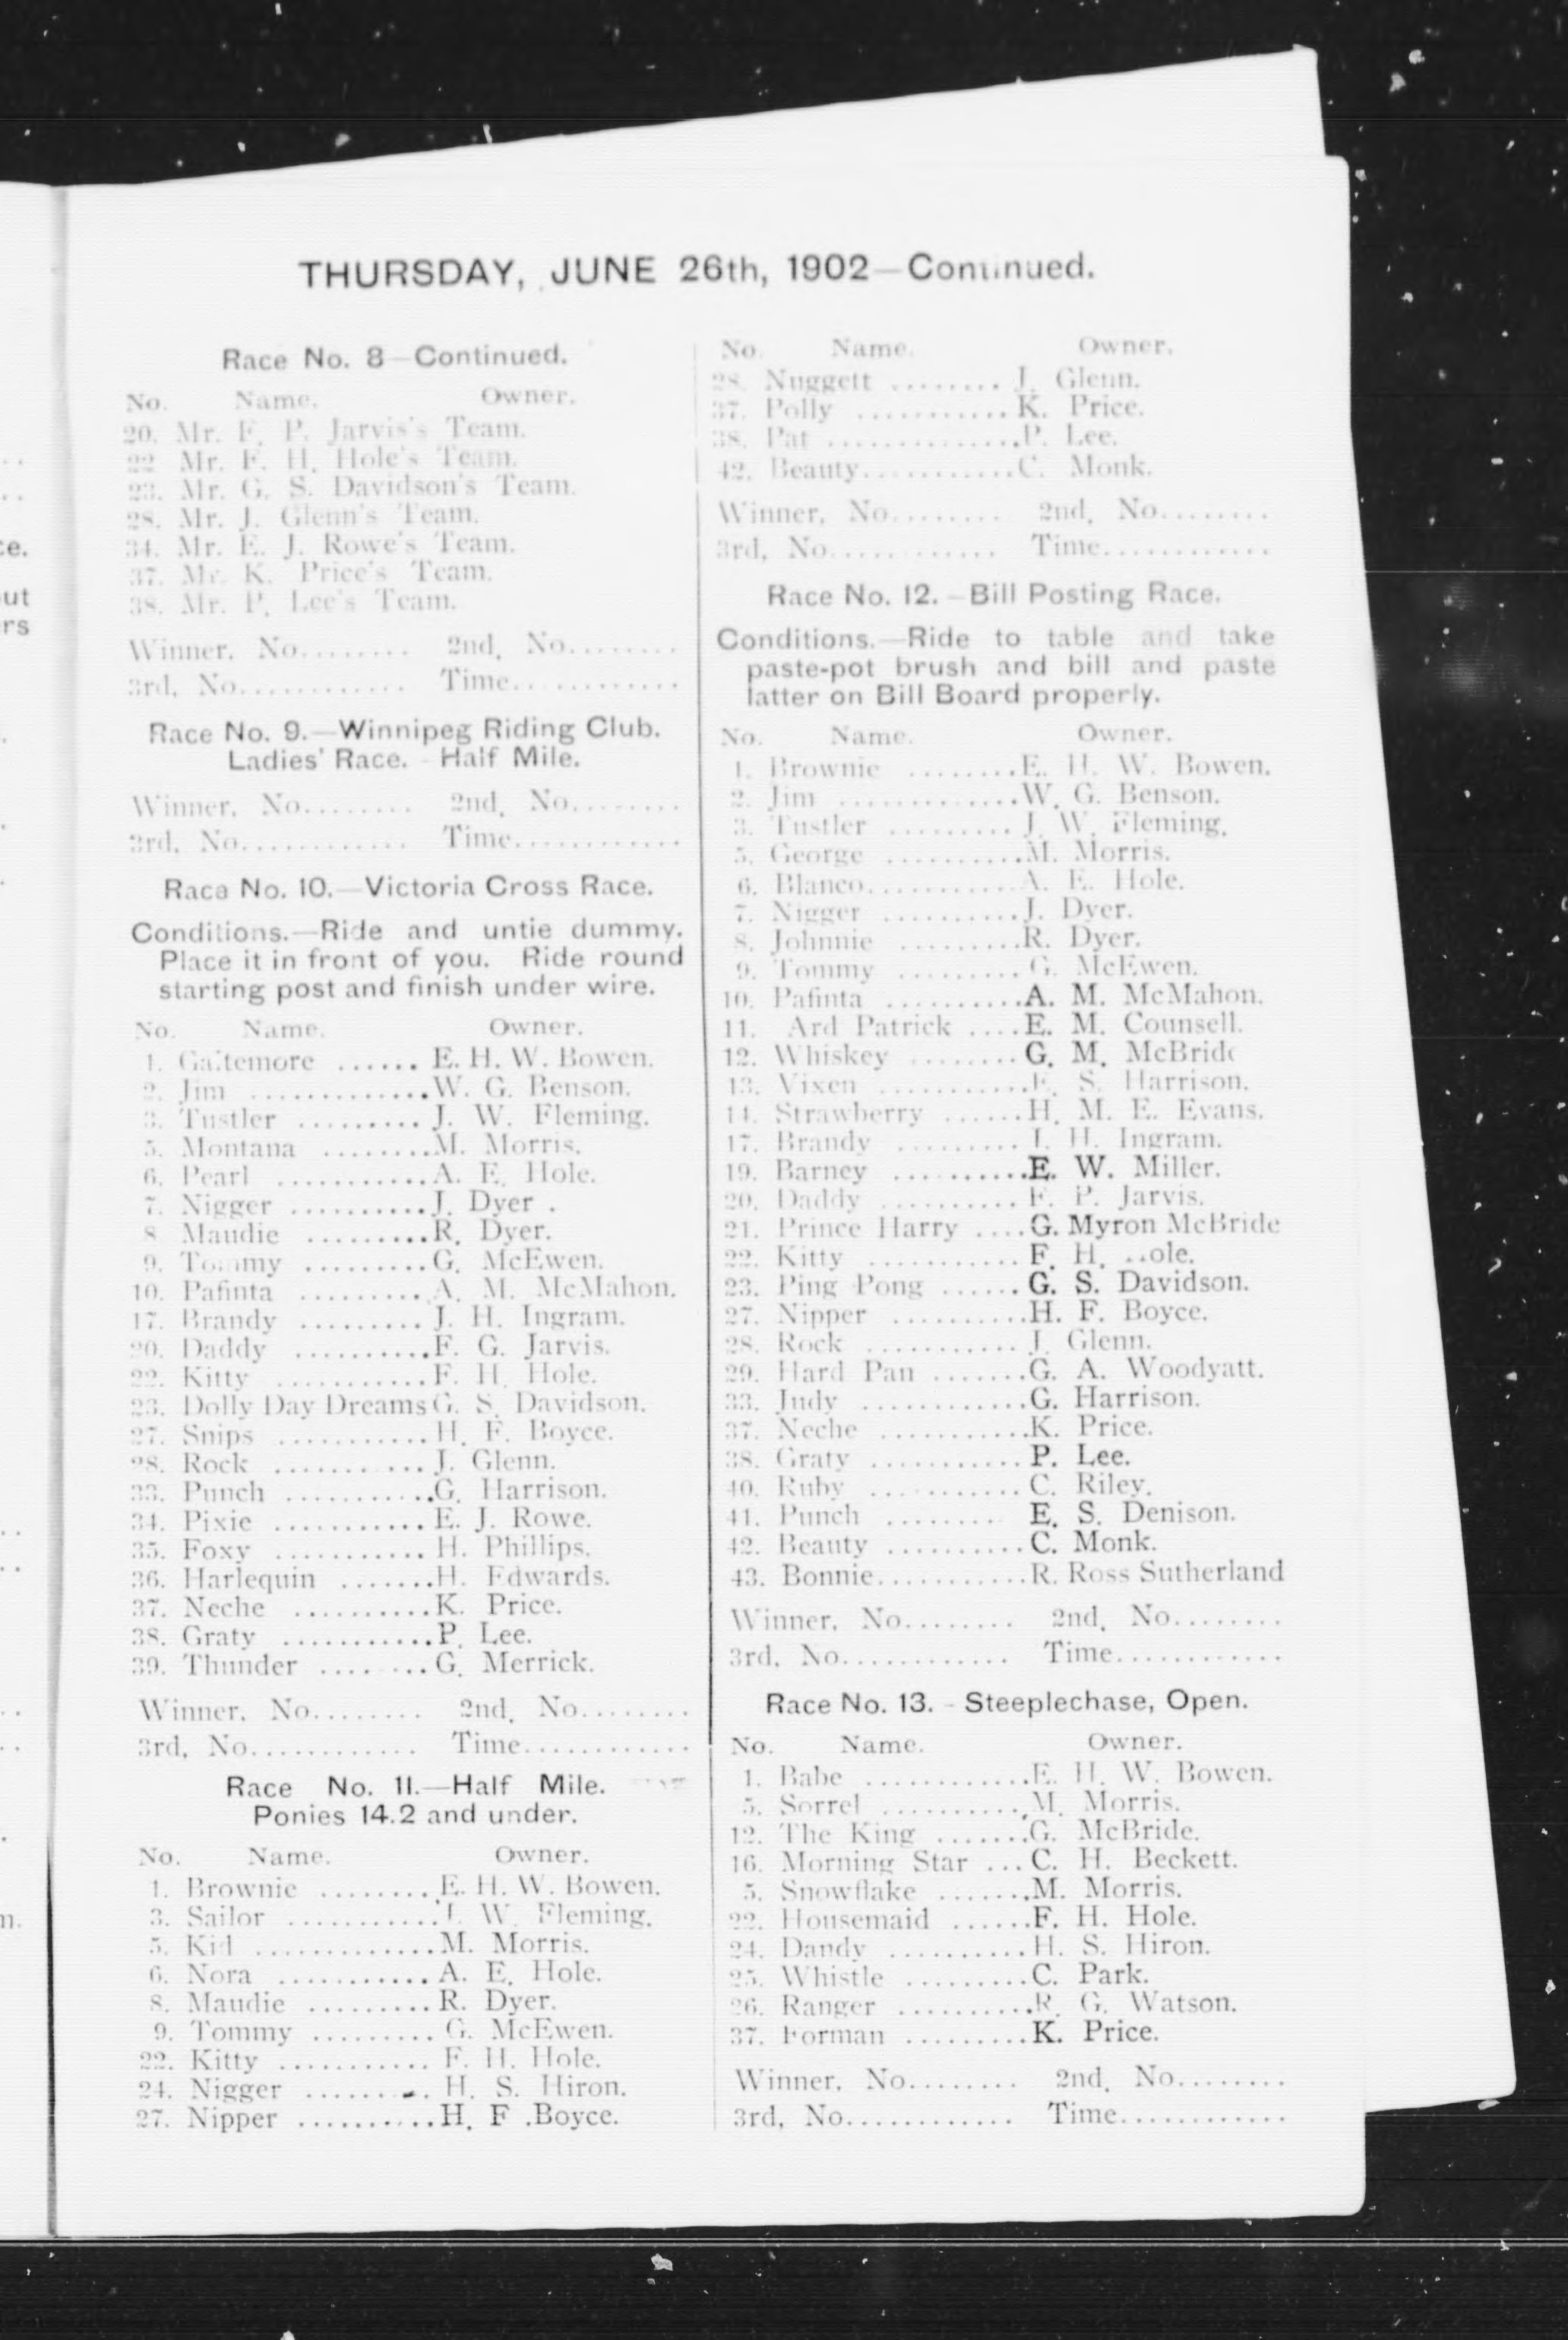 THURSDAY, JUNE 26th, 1902—Continued.
Race No. 8—Continued.
No. Name. Owner.
20. Mr. F. P. Jarvis's Team.
22 Mr. F. H. Hole's Team.
23. Mr. G. S. Davidson's Team.
28. Mr. J. Glenn's Team.
34. Mr. E. J. Rowe's Team.
37. Mr. K. Price's Team.
38. Mr. P. Lee's Team.
Winner, No........ 2nd, No........
3rd, No............ Time............
Race No. 9.—Winnipeg Riding Club.
Ladies' Race. - Half Mile.
Winner, No........ 2nd, No........
3rd, No............ Time............
Race No. 10.—Victoria Cross Race.
Conditions.—Ride and untie dummy.
Place it in front of you. Ride round
starting post and finish under wire.
No. Name. Owner.
1. Galtemore ...... E. H. W. Bowen.
2. Jim .............W. G. Benson.
3. Tustler ......... J. W. Fleming.
5. Montana ........M. Morris.
6. Pearl ...........A. E. Hole.
7. Nigger ..........J. Dyer .
8 Maudie .........R. Dyer.
9. Tommy .........G. McEwen.
10. Pafinta .........A. M. McMahon.
17. Brandy ......... J. H. Ingram.
20. Daddy ..........F. G. Jarvis.
22. Kitty ...........F. H. Hole.
23. Dolly Day Dreams G. S. Davidson.
27. Snips ...........H. F. Boyce.
28. Rock ........... J. Glenn.
33. Punch ...........G. Harrison.
34. Pixie ........... E. J. Rowe.
35. Foxy ........... H. Phillips.
36. Harlequin .......H. Edwards.
37. Neche ..........K. Price.
38. Graty ...........P. Lee.
39. Thunder ........G. Merrick.
Winner, No........ 2nd, No........
3rd, No............ Time............
Race No. 11.—Half Mile.
Ponies 14.2 and under.
No. Name. Owner.
1. Brownie ........E. H. W. Bowen.
3. Sailor ...........J. W. Fleming.
5. Kid .............M. Morris.
6. Nora ........... A. E. Hole.
8. Maudie ......... R. Dyer.
9. Tommy ......... G. McEwen.
22. Kitty ........... F. H. Hole.
24. Nigger ......... H. S. Hiron.
27. Nipper ..........H. F .Boyce.
No. Name. Owner.
28. Nuggett ........ J. Glenn.
37. Polly ...........K. Price.
38. Pat ..............P. Lee.
42. Beauty...........C. Monk.
Winner, No........ 2nd, No........
3rd, No............ Time............
Race No. 12.—Bill Posting Race.
Conditions.—Ride to table and take
paste-pot brush and bill and paste
latter on Bill Board properly.
No. Name. Owner.
1. Brownie ........E. H. W. Bowen.
2. Jim .............W. G. Benson.
3. Tustler ......... J. W. Fleming.
5. George ..........M. Morris.
6. Blanco...........A. E. Hole.
7. Nigger ..........J. Dyer.
8. Johnnie .........R. Dyer.
9. Tommy ......... G. McEwen.
10. Pafinta ..........A. M. McMahon.
11. Ard Patrick ....E. M. Counsell.
12. Whiskey ........G. M. McBride
13. Vixen ...........E. S. Harrison.
14. Strawberry ......H. M. E. Evans.
17. Brandy ......... J. H. Ingram.
19. Barney ..........E. W. Miller.
20. Daddy .......... F. P. Jarvis.
21. Prince Harry ....G. Myron McBride
22. Kitty ........... F. H. ..ole.
23. Ping Pong ...... G. S. Davidson.
27. Nipper ..........H. F. Boyce.
28. Rock ........... J. Glenn.
29. Hard Pan .......G. A. Woodyatt.
33. Judy ............G. Harrison.
37. Neche ...........K. Price.
38. Graty ........... P. Lee.
40. Ruby ........... C. Riley.
41. Punch ......... E. S. Denison.
42. Beauty ..........C. Monk.
43. Bonnie...........R. Ross Sutherland
Winner, No........ 2nd, No........
3rd, No............ Time............
Race No. 13. - Steeplechase, Open.
No. Name. Owner.
1. Babe ............E. H. W. Bowen.
5. Sorrel ..........M. Morris.
12. The King .......G. McBride.
16. Morning Star ...C. H. Beckett.
5. Snowflake .......M. Morris.
22. Housemaid ......F. H. Hole.
24. Dandy ..........H. S. Hiron.
25. Whistle .........C. Park.
26. Ranger ..........R. G. Watson.
37. Forman .........K. Price.
Winner, No........ 2nd, No........
3rd, No............ Time............